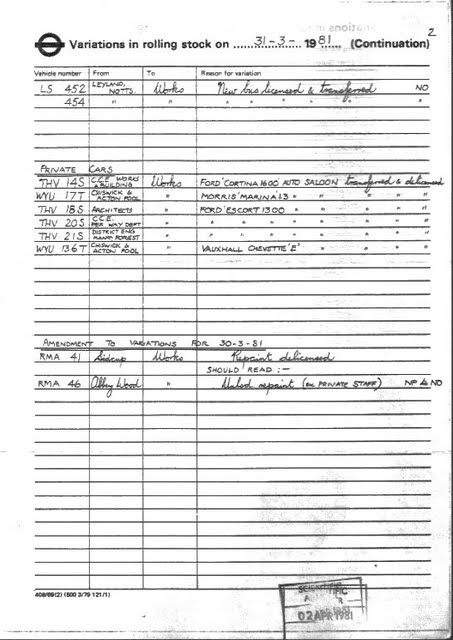 2
Variations in rolling stock on 31-3- 1981 (Continuation)
Vehicle number From To Reason for variation
LS 452 LEYLAND, NOTTS. Works New bus licensed & transferred NO
454 " " " " " " " "
PRIVATE CARS
THV 14S C.C.E. WORKS & BUILDING Works FORD 'CORTINA 1600 AUTO SALOON transferred & delicensed
WYU 17T CHISWICK & ACTON POOL " MORRIS 'MARINA' 1.3 " " "
THV 18S ARCHITECTS " FORD 'ESCORT 1300 " " "
THV 20S C.C.E. PER. WAY DEPT " " " " " " "
THV 21S DISTRICT ENG " " " " " " "
WYU 136T CHISWICK & ACTON POOL " VAUXHALL CHEVETTE 'E' " " "
AMENDMENT TO VARIATIONS FOR 30-3-81
RMA 41 Sidcup Works Repaint delicensed
SHOULD READ :-
RMA 46 Abbey Wood " Unlcd repaint (ex PRIVATE STAFF) NP & NO
408/69(2) (500 3/79 121/1)
02 APR 1981